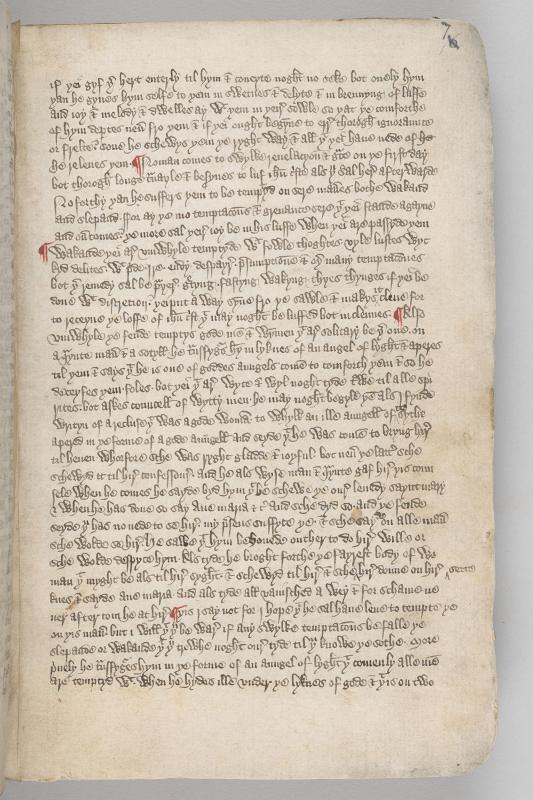 7
if yei gyf yr hert enterly til hym & coueyte noght no seke bot onely hym
yan he gyues hym selfe to yam in swetnes & delyte & in brennyng of luffe
and ioy & melody & dwelles ay wt yem in yeir sowle so yat ye comforthe
of hym departes neu fro yem & if yei ought begyne to err thorogh ignorannce
or freelte sone he schewys yem ye ryght way & all yt yei haue nede of he
he releues yem ¶ Noman comes to swylke reuelacyon & gce on ye first day
bot thorogh longe trauyle & besynes to luf ihu crist als yu sal her afterwarde
No forthy yan he suffers yem to be tempyd on sere maners bothe wakand
and slepand ffor ay ye mo temptacons & greuannce sere yt yei stande agayne
and ou comes ye more sal yeir ioy be in his luffe when yei are passyde yem
¶ Wakande yei ar vmwhyle temptyde wt fowle thoghtes vyle lustes wyc
kyd delites wt pde ire enuy despayr psumptione & oyr many temptacones
bot yr remedy sal be prayer gretyng fastyng wakyng thyes thynges if yei be
done wt discrecion yei put a way syne fro ye sawle & makys it clene for
to receyue ye luffe of ihu crist yt may noght be luffed bot in clennes ¶ Also
vmwhyle ye fende temptys gode men & wymen yt ar solitary be yr one on
a qwynte maner & a sotyll he transfygurs hym in lyknes of an angel of lyght & aperes
til yem & says yt he is one of goddes aungels comen to comforth yem & so he
deceyfes yem foles bot yei yt ar wyse & wyl noght tyde trowe til alle spi
rites bot askes counscell of wytty men he may noght begyle yem als I fynde
wrytyn of a recluse yt was a gode woman to whylk an ille aungell oft sythe
aperid in ye forme of a gode aungell and seyde yt he was comen to bryng hir
til heuen Wherfore sche was ryght gladde & ioyful bot neu ye later sche
schewyd it til hir confessour and he als wyse man & qwynte gaf hir yis coun
sele when he comes he sayde byd hym yt he schewe ye our leuedy saynt mary
& when he has done so say aue maria &c and sche dyd so and ye fende
seyde yu has no nede to se hir my psens suffyce ye & sche sayd on alle maner
sche wolde se hir He sawe yt hym behoued outher to do hir wille or
sche wolde despyce hym Als tyde he broght forthe ye fayrest body of wo
man yt myght be als til hir syght & schewyd til hir & sche sette hir doune on hir
knes & sayde aue maria and als tyde all vanisched a wey & for schame ne
uer after com he at hir ¶ yis I say not for I hope yt he sal haue leue to tempte ye
on yis maner but I will yt yu be war if any swylke temptacons be falle ye
slepande or wakande yt yu trowhe noght our tyde til yu knowe ye sothe More
priuely he transfygurs hym in ye forme of an aungel of lyght yt comenly alle men
are temptyd wt When he hydes ille vnder ye lyknes of gode & yis is on two